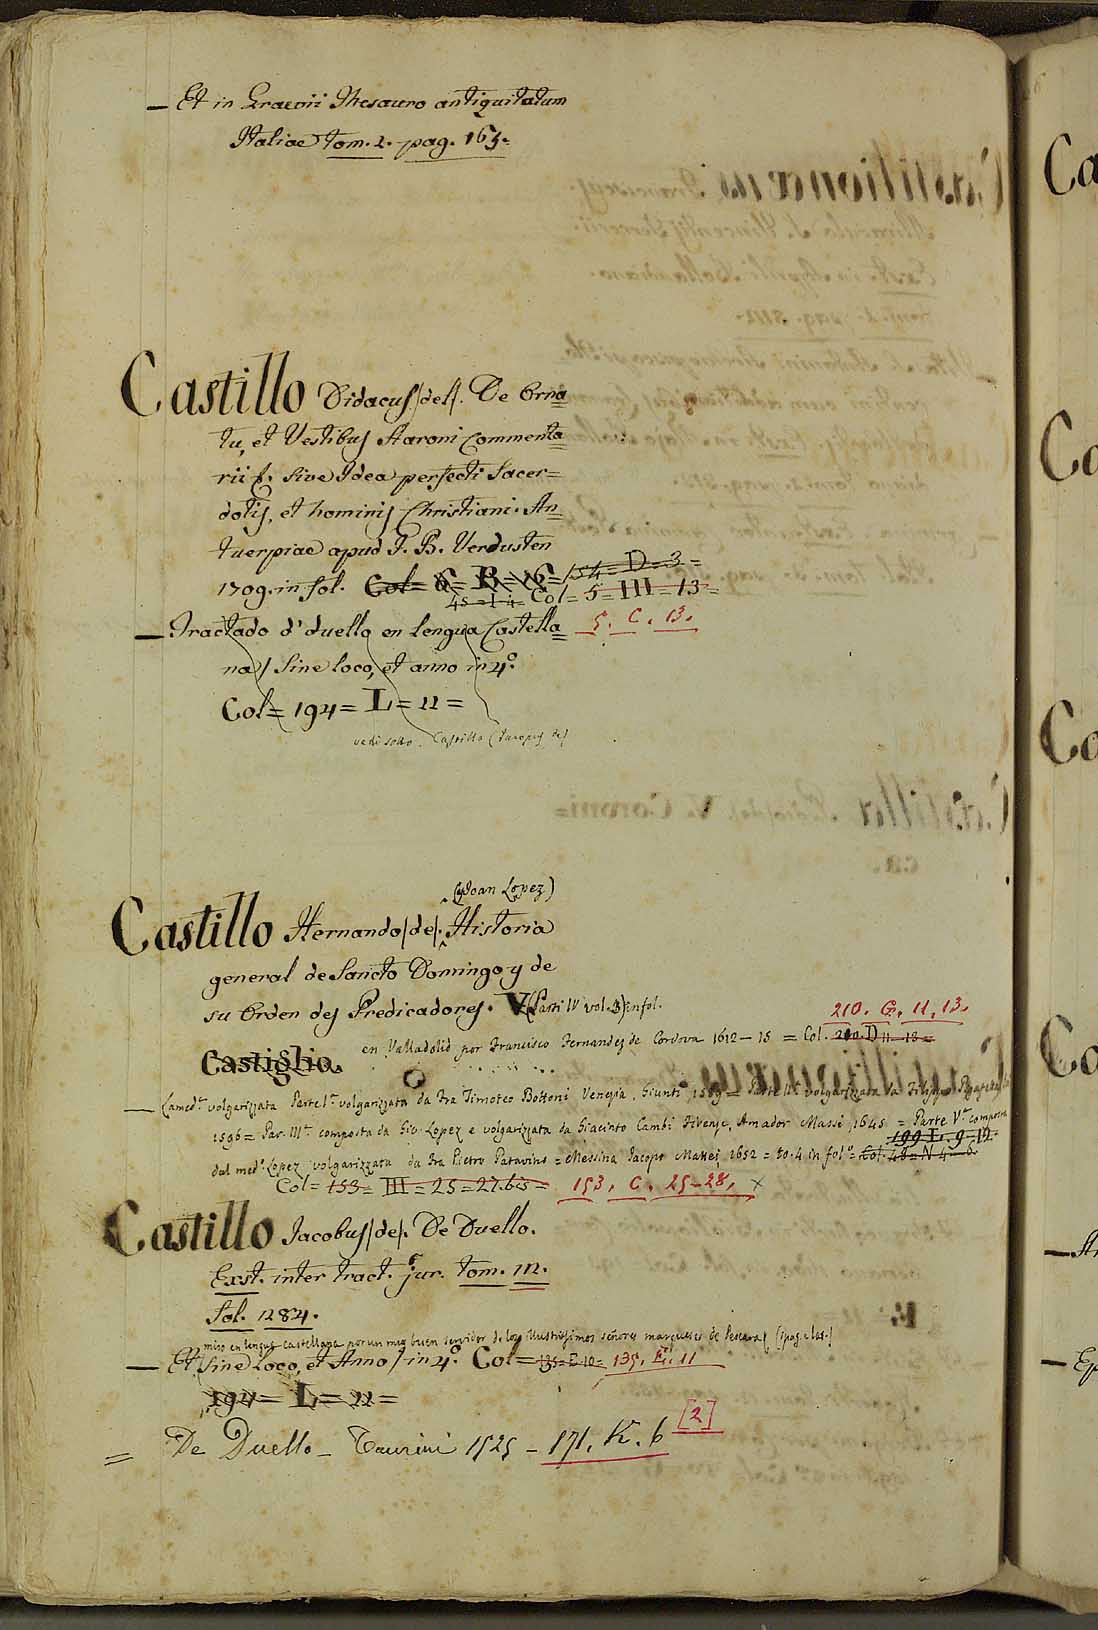 — Et in Graevii Thesauro antiquitatum
Italiae tom. 2. pag. 165.
Castillo Didacus/de/. De Orna=
tu, et Vestibus Aaroni Commenta=
rii &. Sive Idea perfecti Sacer=
dotis, et hominis Christiani. An=
tuerpiae apud J. B. Verdusten
1709. in fol. Col= 6= B= 16= 154= D= 3=
45= I 4= Col= 5= III= 13=
— Tractado d'duello en lengua Castella= 5. C. 13.
na/ Sine loco, et anno in 4º.
Col= 194= L= 22=
vedi sotto. Castillo (Jacopus de)
(y Joan Lopez)
Castillo Hernando/de/. Historia
general de Sancto Domingo y de
su Orden des Predicadores. V. (Parti IV vol. 3) in fol. 210. G. 11, 13.
en Valladolid por Francisco Fernandez de Cordova 1612–15 = Col. 210. D 11–13=
Castiglio.
— La med.ª volgarizzata Parte I.ª volgarizzata da Fra Timoteo Bottoni Venezia, Giunti 1589= Parte II.ª volgarizzata da Filippo
1596= Par. III.ª composta da Gio. Lopez e volgarizzata da Giacinto Cambi Firenze, Amador Massi, 1645 = Parte V.ª composta
199 L. 9–12.
dal med.º Lopez volgarizzata da Fra Pietro Patavino= Messina Jacopo Mattei 1652 = to. 4 in fol.º= Col. 48= N 4–6.
Col= 153= III= 25=27.bis= 153. C. 25–28. x
Castillo Jacobus/de/. De Duello.
Exst. inter tract. jur. tom. 12.
fol. 1284.
miso en lengua castellana por un muy buen servidor de los illustrissimos señores marqueses de Pescara/
— Et Sine Loco, et Anno/ in 4º. Col= 135= E 10= 135. E. 11
194= L= 22=
= De Duello – Taurini 1525 – 171. K. 6 [2]